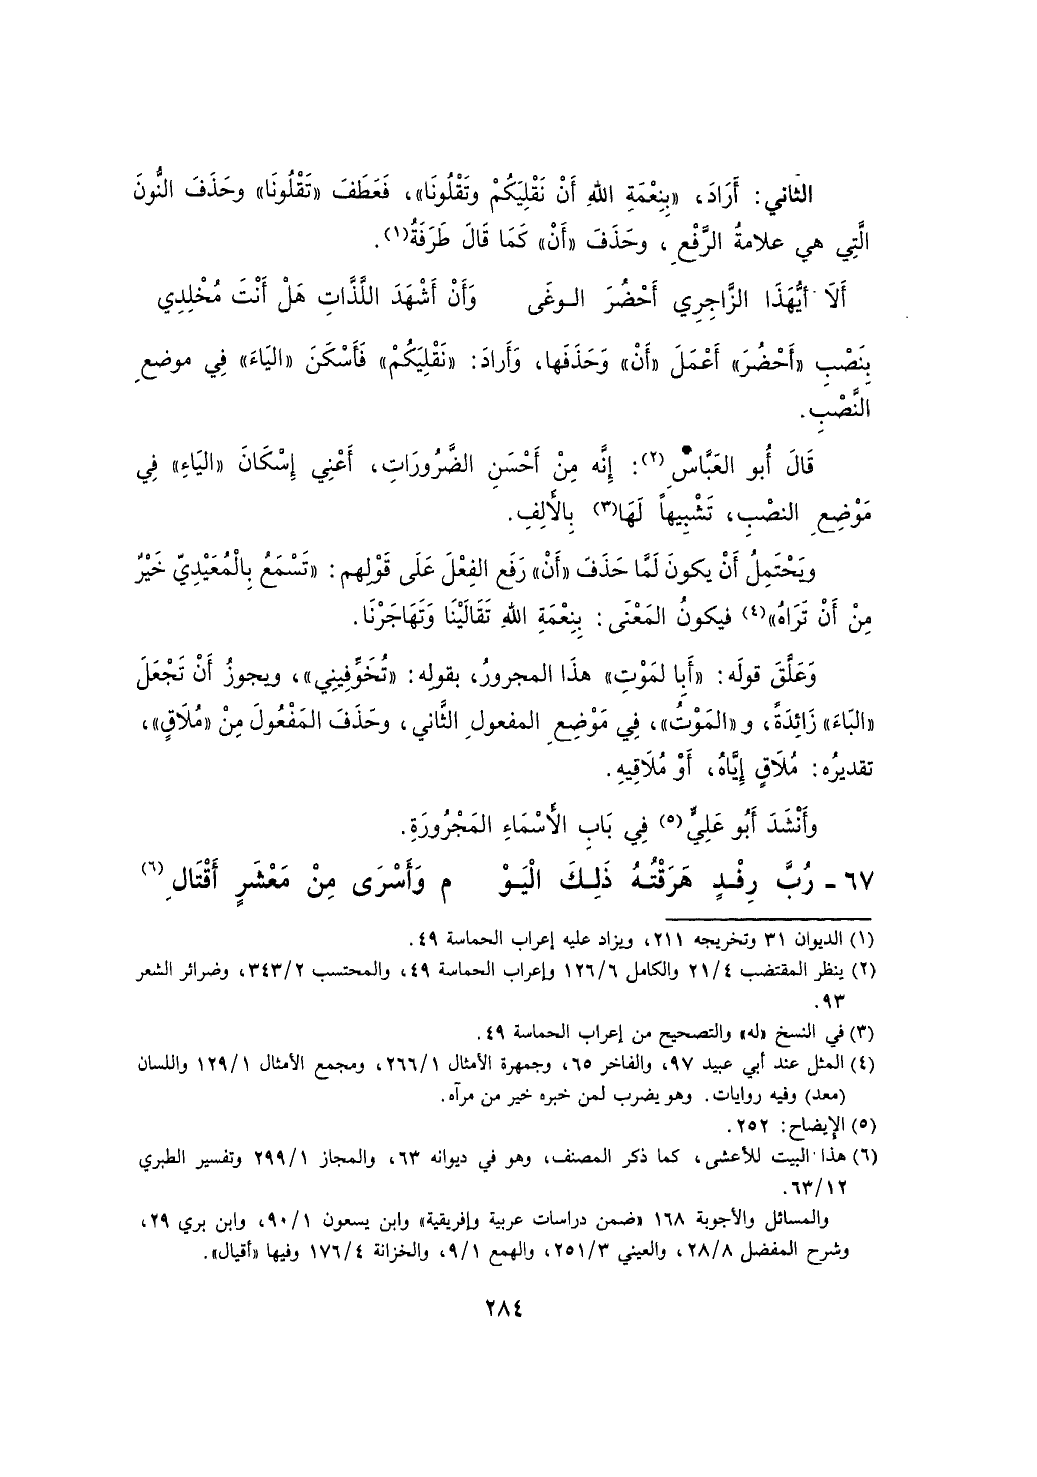 الثاني: أَرَادَ، «بِنِعْمَةِ اللهِ أَنْ نَقْلِيَكُمْ وتَقْلُونَا»، فَعَطَفَ «تَقْلُونَا» وحَذَفَ النُّونَ
الَّتِي هي علامةُ الرَّفْعِ، وحَذَفَ «أَنْ» كَمَا قَالَ طَرَفَةُ(١).
أَلَا أَيُّهَذَا الزَّاجِرِي أَحْضُرَ الـوغَى وَأَنْ أَشْهَدَ اللَّذَّاتِ هَلْ أَنْتَ مُخْلِدِي
بِنَصْبِ «أَحْضُرَ» أَعْمَلَ «أَنْ» وَحَذَفَها، وَأَرادَ: «نَقْلِيَكُمْ» فَأَسْكَنَ «اليَاءَ» فِي موضعِ
النَّصْبِ.
قَالَ أَبو العَبَّاسِ(٢): إِنَّه مِنْ أَحْسَنِ الضَّرُورَاتِ، أَعْنِي إِسْكَانَ «اليَاءِ» فِي
مَوْضِعِ النصْبِ، تَشْبِيهاً لَهَا(٣) بِالأَلِفِ.
ويَحْتَمِلُ أَنْ يكونَ لَمَّا حَذَفَ «أَنْ» رَفَع الفِعْلَ عَلَى قَوْلِهم: «تَسْمَعُ بِالْمُعَيْدِيِّ خَيْرٌ
مِنْ أَنْ تَرَاهُ»(٤) فيكونُ المَعْنَى: بِنِعْمَةِ اللهِ تَقَالَيْنَا وَتَهَاجَرْنَا.
وَعَلَّقَ قولَه: «أَبا لمَوْتِ» هذَا المجرورُ، بقولِه: «تُخَوِّفِينِي»، ويجوزُ أَنْ تَجْعَلَ
«البَاءَ» زَائِدَةً، و«المَوْتُ»، فِي مَوْضِعِ المفعولِ الثَّاني، وحَذَفَ المَفْعُولَ مِنْ «مُلَاقٍ»،
تقديرُه: مُلَاقٍ إِيَّاهُ، أَوْ مُلَاقِيهِ.
وأَنْشَدَ أَبُو عَلِيٍّ(٥) فِي بَابِ الأَسْمَاءِ المَجْرُورَةِ.
٦٧ - رُبَّ رِفْـدٍ هَرَقْتُـهُ ذَلِـكَ الْيَـوْ م وَأَسْرَى مِنْ مَعْشَرٍ أَقْتَالِ(٦)
(١) الديوان ٣١ وتخريجه ٢١١، ويزاد عليه إعراب الحماسة ٤٩.
(٢) ينظر المقتضب ٢١/٤ والكامل ١٢٦/٦ وإعراب الحماسة ٤٩، والمحتسب ٣٤٣/٢، وضرائر الشعر
٩٣.
(٣) في النسخ «له» والتصحيح من إعراب الحماسة ٤٩.
(٤) المثل عند أبي عبيد ٩٧، والفاخر ٦٥، وجمهرة الأمثال ٢٦٦/١، ومجمع الأمثال ١٢٩/١ واللسان
(معد) وفيه روايات. وهو يضرب لمن خبره خير من مرآه.
(٥) الإيضاح: ٢٥٢.
(٦) هذا البيت للأعشى، كما ذكر المصنف، وهو في ديوانه ٦٣، والمجاز ٢٩٩/١ وتفسير الطبري
٦٣/١٢.
والمسائل والأجوبة ١٦٨ «ضمن دراسات عربية وإفريقية» وابن يسعون ٩٠/١، وابن بري ٢٩،
وشرح المفضل ٢٨/٨، والعيني ٢٥١/٣، والهمع ٩/١، والخزانة ١٧٦/٤ وفيها «أقيال».
٢٨٤